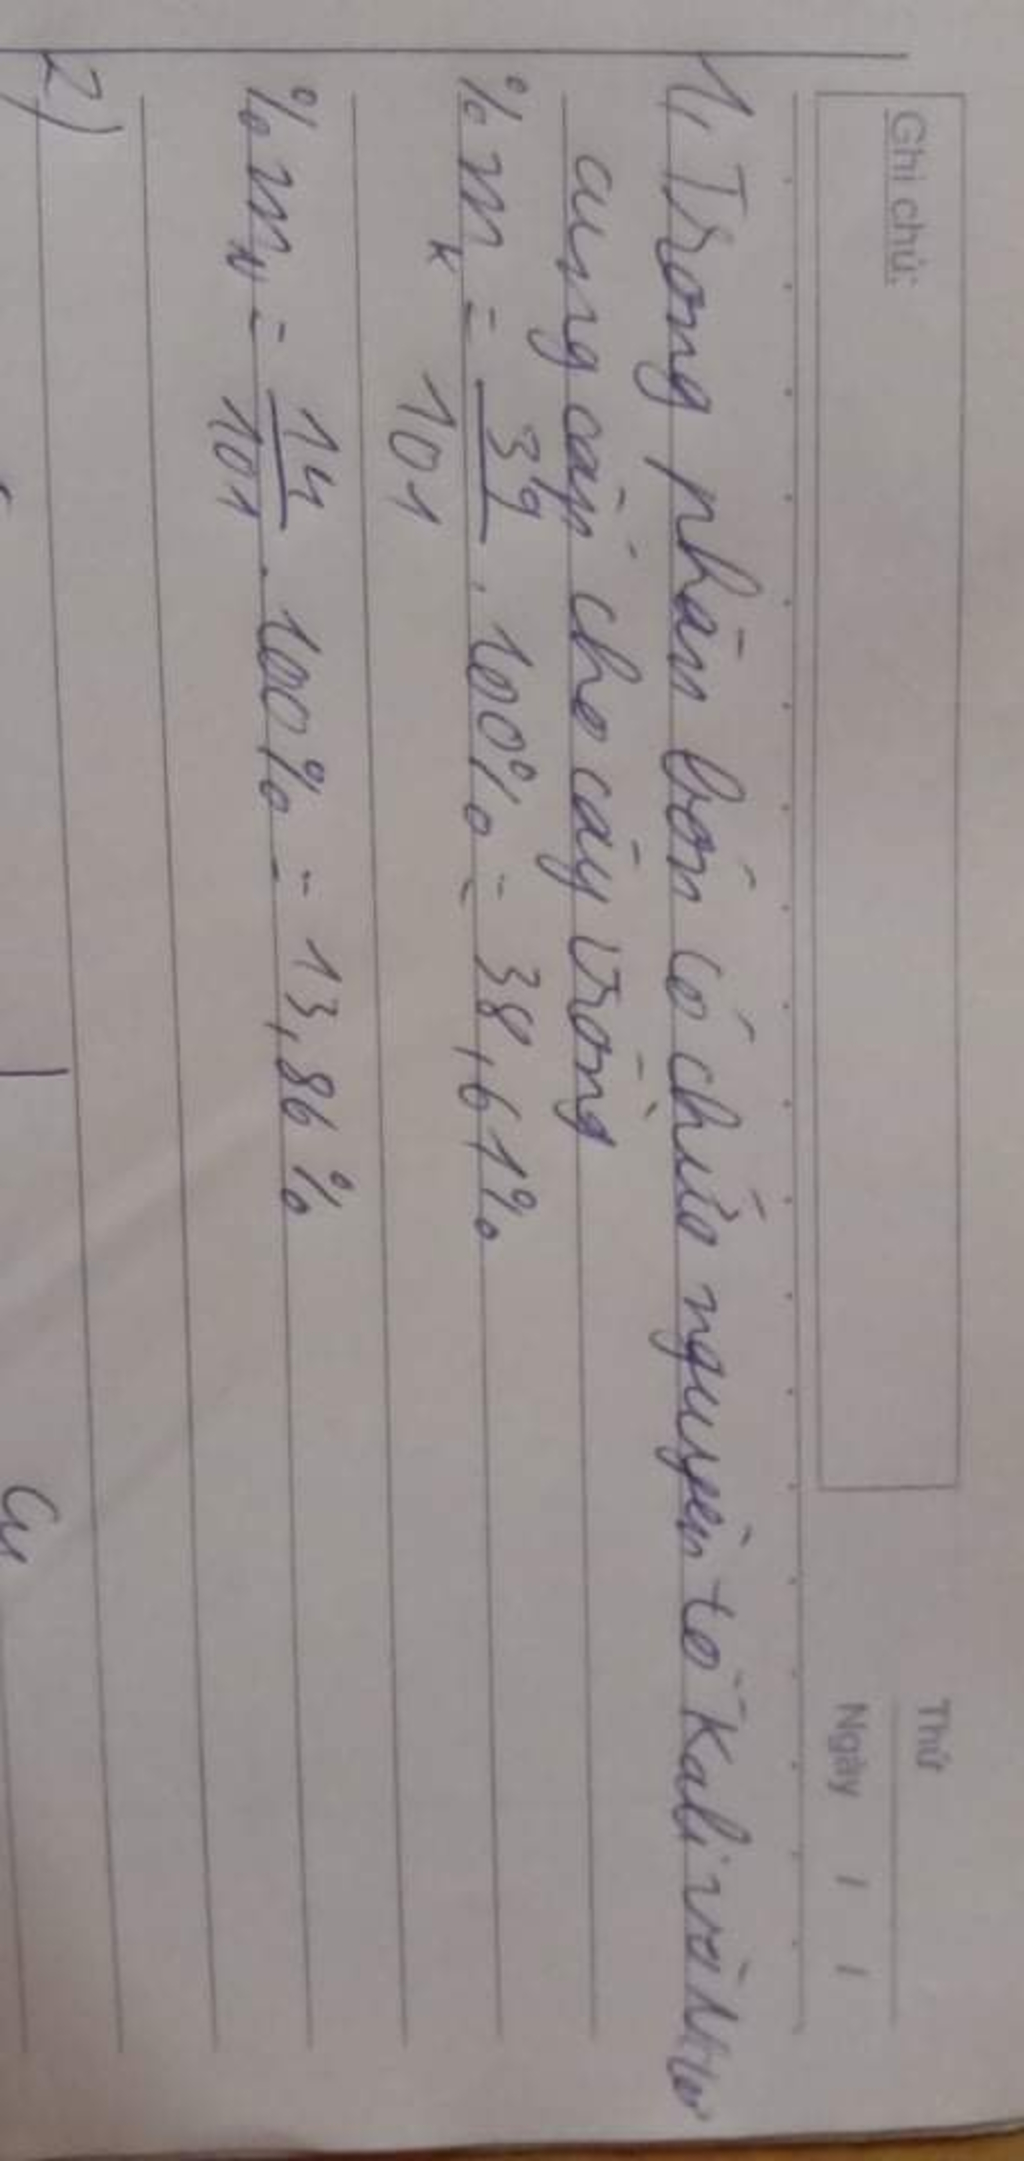 Ghi chú:
Thứ
Ngày / /
1, Trong phân bón có chứa nguyên tố Kali và Nitơ
cung cấp cho cây trồng
% m K = 39/101 . 100% = 38,61%
% m N = 14/101 . 100% = 13,86 %
2)
Cu